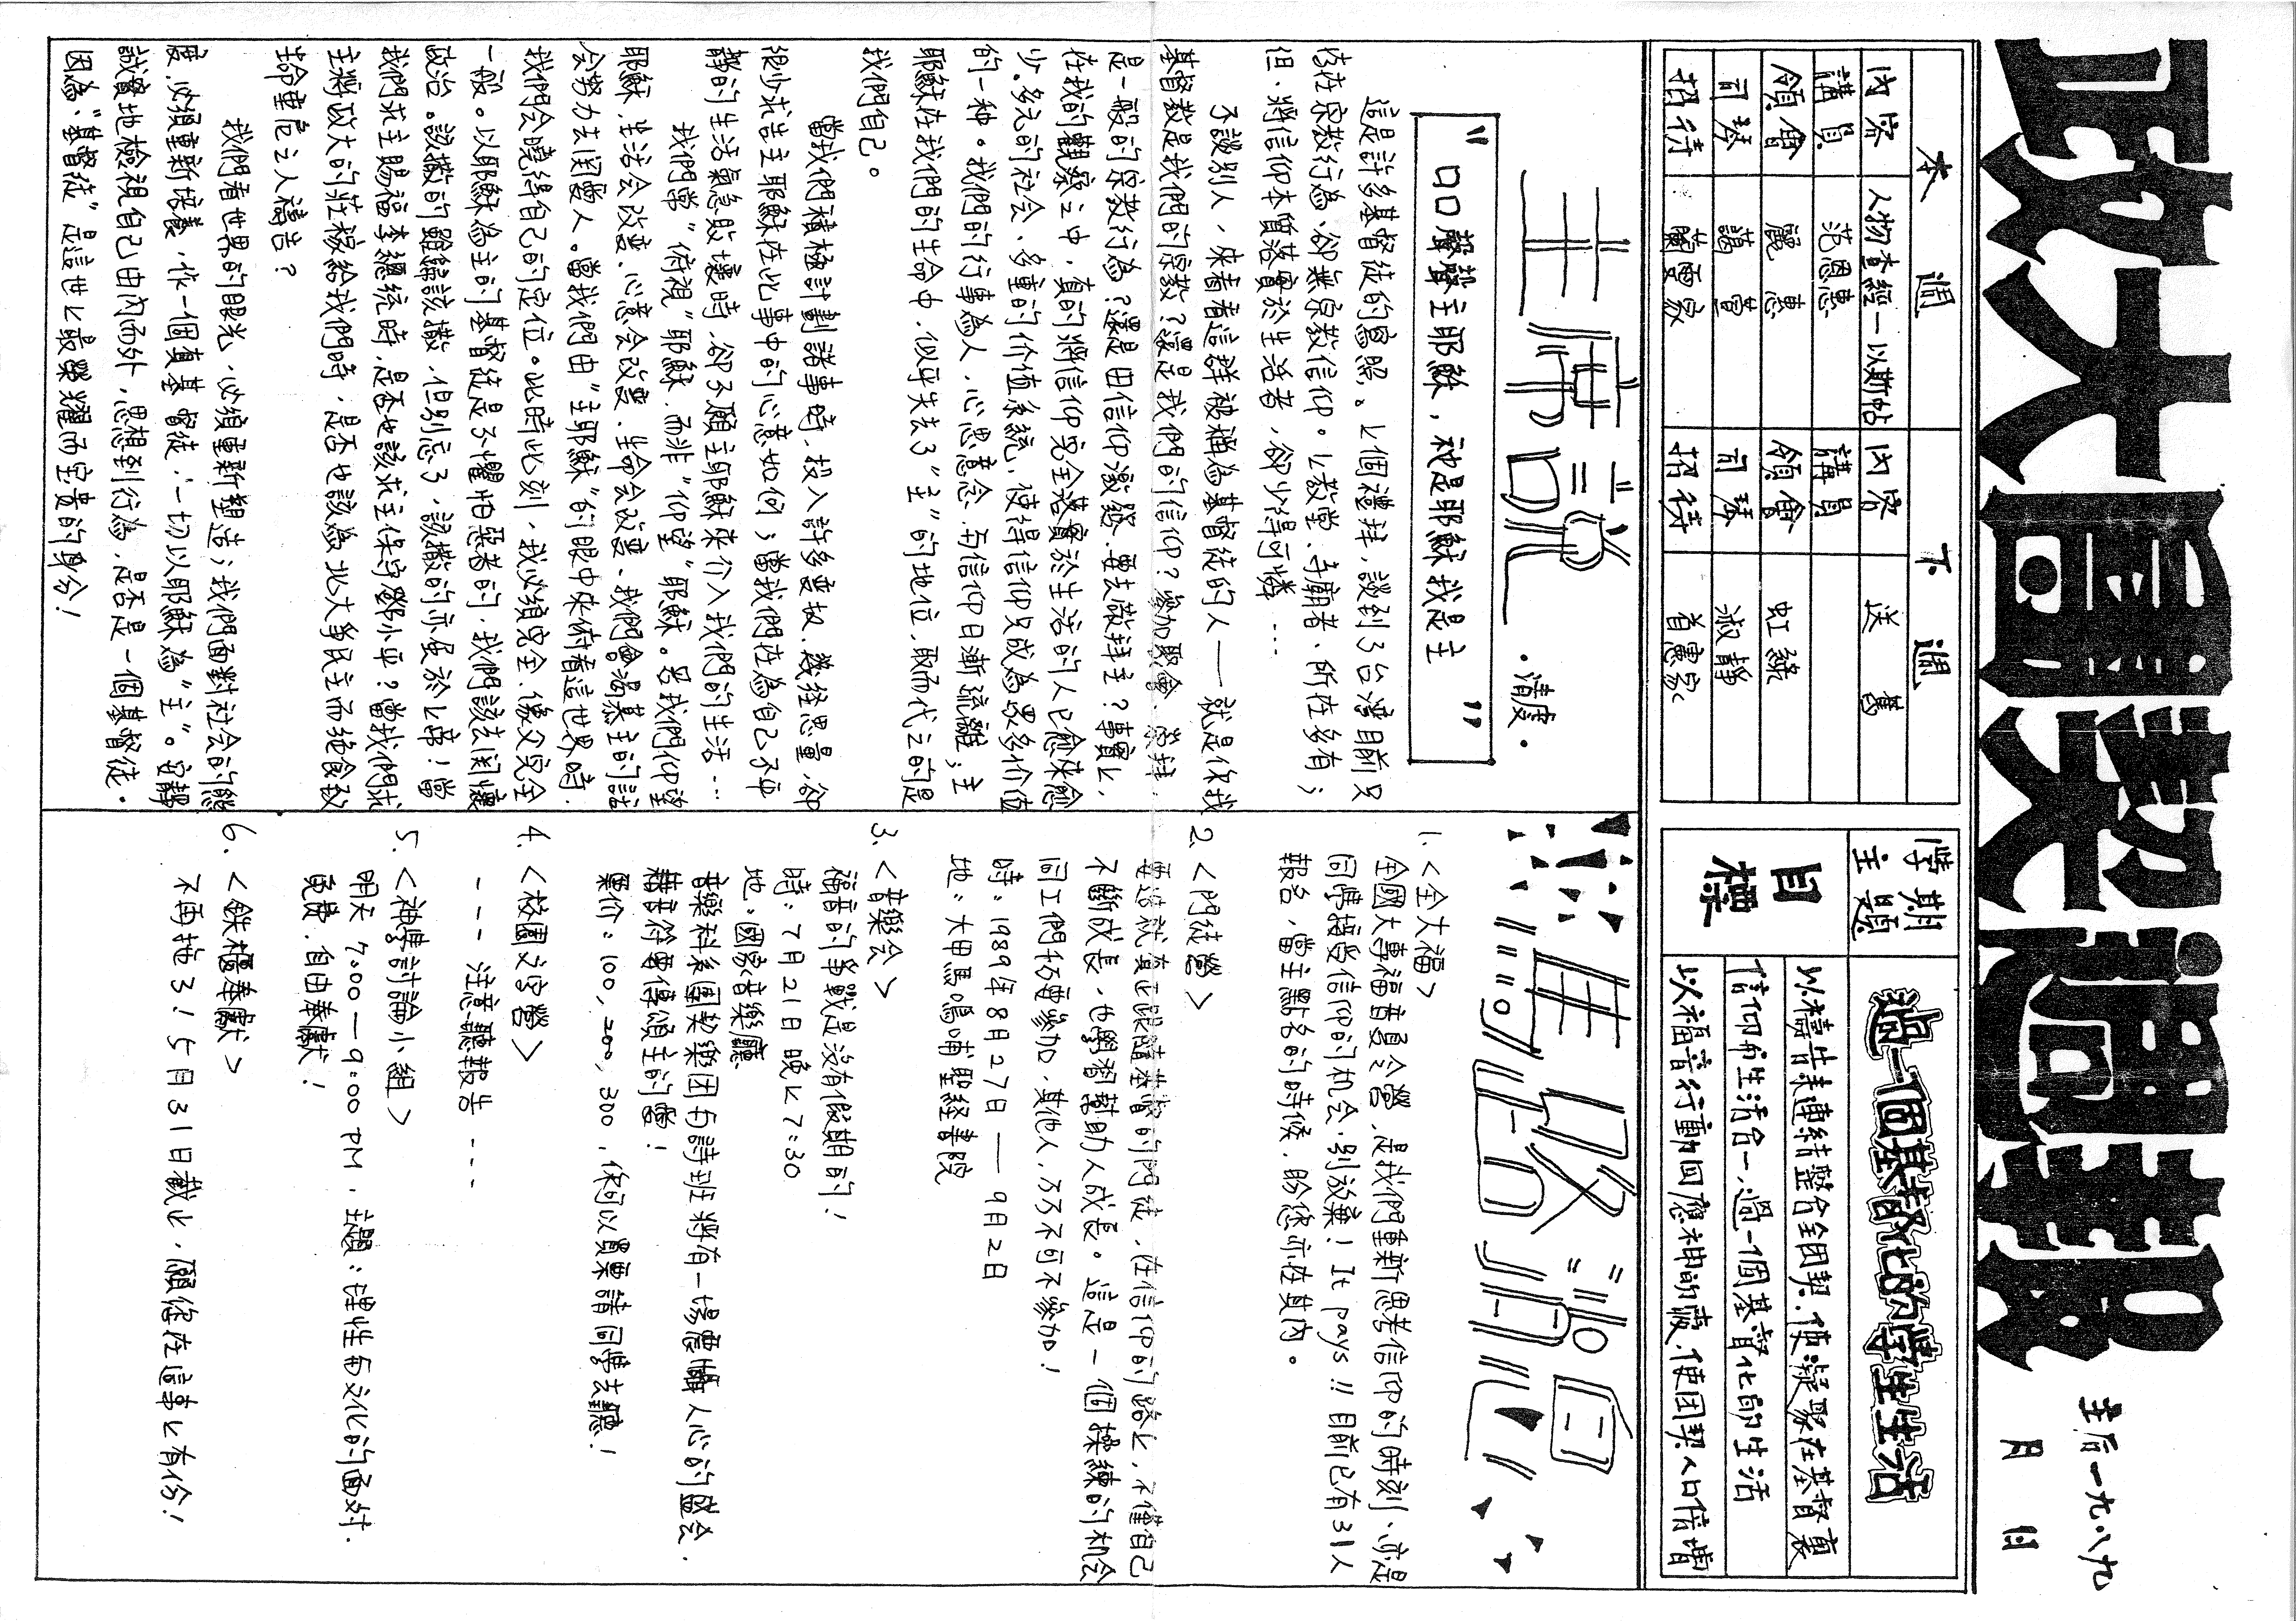 政大團契週報
主后一九八九
月 日
本週
內容 人物查經—以斯帖
講員 范恩惠
領會 麗惠
司琴 藹萱
招待 蘭雯家
下週
內容 送舊
講員
領會 虹綠
司琴 淑靜
招待 首惠家
學期主題
過一個基督化的學生生活
目標
以禱告來連結整合全團契,使凝聚在基督裏
信仰和生活合一,過一個基督化的生活
以福音行動回應神的誡,使團契人口倍增
・清度・
"口口聲聲主耶穌,祂是耶穌我是主"
這是許多基督徒的寫照。上個禮拜,談到了台灣目前只
落在宗教行為,卻無宗教信仰。上教堂、寺廟者,所在多有;
但,將信仰本質落實於生活者,卻少得可憐…
不談別人,來看看這群被稱為基督徒的人——就是你我
基督教是我們的宗教?還是我們的信仰?參加聚會、崇拜,
是一般的宗教行為?還是由信仰激發,要去敬拜主?事實上,
在我的觀察之中,真的將信仰完全落實於生活的人已愈來愈
少。多元的社會、多重的价值系統,使得信仰只成為眾多价值
的一种。我們的行事為人,心思意念,与信仰日漸疏離;主
耶穌在我們的生命中,似乎失去了"主"的地位,取而代之的是
我們自己。
當我們積極計劃諸事時,投入許多變故,幾經思量,卻
很少求告主耶穌在此事中的心意如何;當我們在為自己不平
靜的生活氣急敗壞時,卻不願主耶穌來介入我們的生活…
我們常"俯視"耶穌,而非"仰望"耶穌。若我們仰望
耶穌,生活会改变,心意会改变,生命会改变,我們會渴慕主的話
会努力去関愛人。當我們由"主耶穌"的眼中來俯看這世界時,
我們会曉得自己的定位。此時此刻,我必須完全,像父完全
一般。以耶穌為主的基督徒是不懼怕惡者的,我們該去関懷
政治。該撒的歸給該撒,但別忘了,該撒的亦虽於上帝!當
我們求主賜福李總統時,是否也該求主保守鄧小平?當我們求
主將政大的莊稼給我們時,是否也該為北大爭民主而絕食致
生命垂危之人禱告?
我們看世界的眼光,必須重新塑造;我們面對社会的態
度,必須重新培養,作一個真基督徒,一切以耶穌為"主"。安靜
誠實地檢視自己由內而外,思想到行為,是否是一個基督徒。
因為"基督徒"是這世上最榮耀而宝貴的身分!
1.<全大福>
全國大專福音員令營,是我們重新思考信仰的時刻,亦是
同學接受信仰的机会,別放棄!It pays!!目前已有31人
報名,當主點名的時候,盼您亦在其內。
2.<門徒營>
要造就真正跟隨基督的門徒,在信仰的路上,不僅自己
不斷成長,也學習幫助人成長。這是一個操練的机会
同工們极應參加,其他人,不不可不參加!
時:1989年8月27日——9月2日
地:大甲馬鳴埔聖經書院
3.<音樂会>
福音的爭戰是沒有假期的!
時:7月21日晚上7:30
地:國家音樂廳
音樂科系團契樂团与詩班將有一場震撼人心的盛会,
藉音符來傳頌主的愛!
票价:100,200,300,你可以買票請同學去聽!
4.<校園文字營>
---注意聽報告---
5.<神學討論小組>
明天7:00—9:00 PM,主題:理性与文化的面对.
免費,自由奉獻!
6.<鉄櫃奉獻>
不再拖了!5月31日截止,願你在這事上有份!